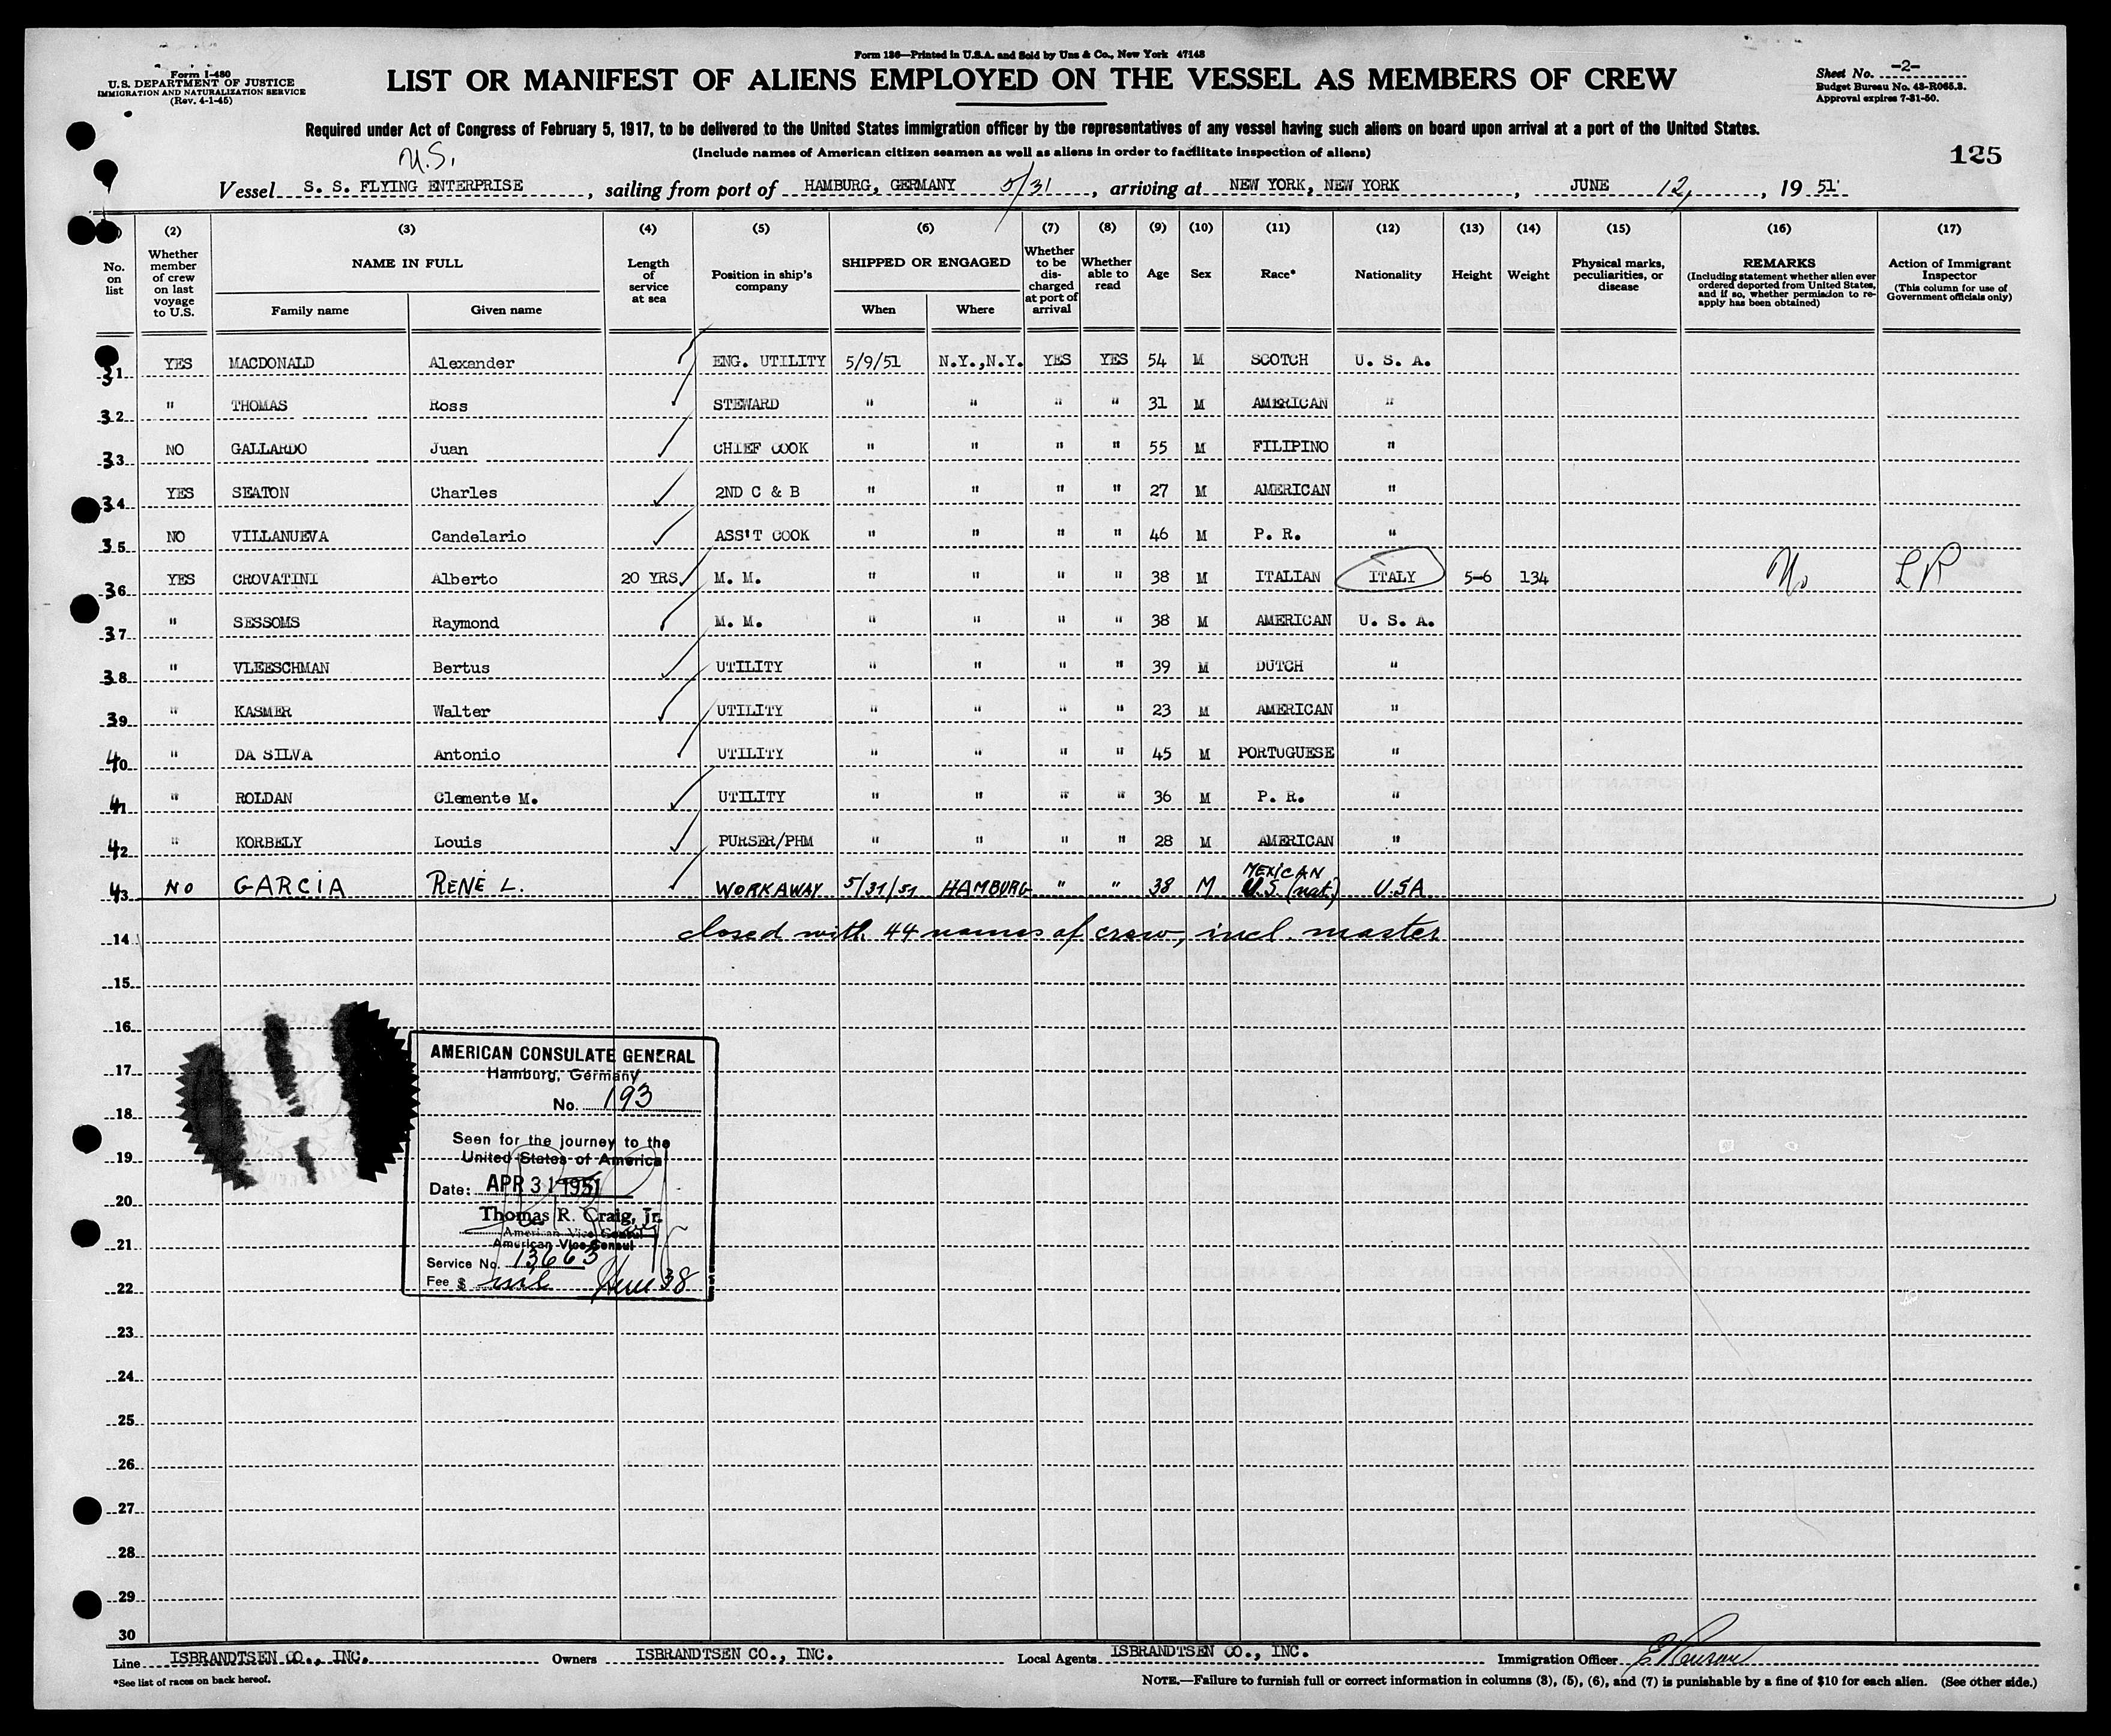 Form 126—Printed in U.S.A. and Sold by Unz & Co., New York 47148
Form I-480
U.S. DEPARTMENT OF JUSTICE
IMMIGRATION AND NATURALIZATION SERVICE
(Rev. 4-1-45)
LIST OR MANIFEST OF ALIENS EMPLOYED ON THE VESSEL AS MEMBERS OF CREW
Sheet No. -2-
Budget Bureau No. 43-R065.3.
Approval expires 7-31-50.
Required under Act of Congress of February 5, 1917, to be delivered to the United States immigration officer by the representatives of any vessel having such aliens on board upon arrival at a port of the United States.
(Include names of American citizen seamen as well as aliens in order to facilitate inspection of aliens)
125
U.S.
Vessel S. S. FLYING ENTERPRISE, sailing from port of HAMBURG, GERMANY 5/31, arriving at NEW YORK, NEW YORK, JUNE 12, 1951
(2) (3) (4) (5) (6) (7) (8) (9) (10) (11) (12) (13) (14) (15) (16) (17)
No. on list
Whether member of crew on last voyage to U.S.
NAME IN FULL
Family name Given name
Length of service at sea
Position in ship's company
SHIPPED OR ENGAGED
When Where
Whether to be discharged at port of arrival
Whether able to read
Age
Sex
Race*
Nationality
Height
Weight
Physical marks, peculiarities, or disease
REMARKS
(Including statement whether alien ever ordered deported from United States, and if so, whether permission to reapply has been obtained)
Action of Immigrant Inspector
(This column for use of Government officials only)
31 YES MACDONALD Alexander ENG. UTILITY 5/9/51 N.Y.,N.Y. YES YES 54 M SCOTCH U. S. A.
32 " THOMAS Ross STEWARD " " " " 31 M AMERICAN "
33 NO GALLARDO Juan CHIEF COOK " " " " 55 M FILIPINO "
34 YES SEATON Charles 2ND C & B " " " " 27 M AMERICAN "
35 NO VILLANUEVA Candelario ASS'T COOK " " " " 46 M P. R. "
36 YES CROVATINI Alberto 20 YRS. M. M. " " " " 38 M ITALIAN ITALY 5-6 134 No LP
37 " SESSOMS Raymond M. M. " " " " 38 M AMERICAN U. S. A.
38 " VLEESCHMAN Bertus UTILITY " " " " 39 M DUTCH "
39 " KASMER Walter UTILITY " " " " 23 M AMERICAN "
40 " DA SILVA Antonio UTILITY " " " " 45 M PORTUGUESE "
41 " ROLDAN Clemente M. UTILITY " " " " 36 M P. R. "
42 " KORBELY Louis PURSER/PHM " " " " 28 M AMERICAN "
43 NO GARCIA RENE L. WORKAWAY 5/31/51 HAMBURG " " 38 M MEXICAN U.S. (nat.) U.S.A
closed with 44 names of crew, incl. master
14
15
16
17
18
19
20
21
22
23
24
25
26
27
28
29
30
AMERICAN CONSULATE GENERAL
Hamburg, Germany
No. 193
Seen for the journey to the
United States of America
Date: APR 31 1951
Thomas R. Craig, Jr.
American Vice Consul
American Vice Consul
Service No. 13663
Fee $ nil 38
Line ISBRANDTSEN CO., INC. Owners ISBRANDTSEN CO., INC. Local Agents ISBRANDTSEN CO., INC. Immigration Officer
*See list of races on back hereof.
NOTE.—Failure to furnish full or correct information in columns (3), (5), (6), and (7) is punishable by a fine of $10 for each alien. (See other side.)